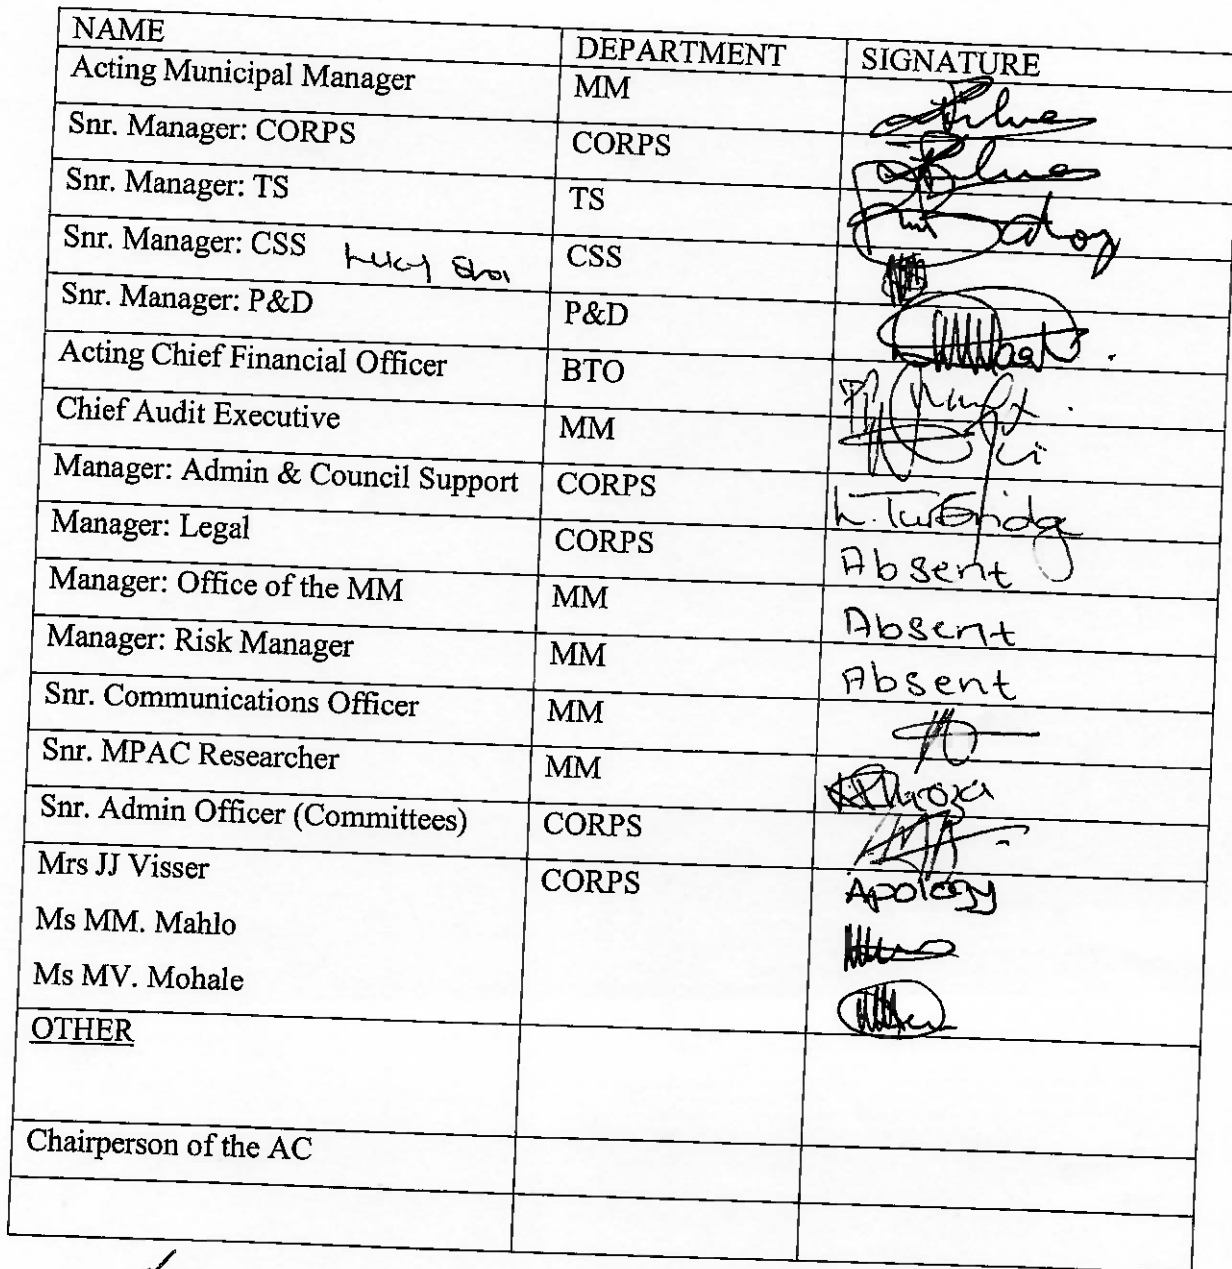 NAME DEPARTMENT SIGNATURE
Acting Municipal Manager MM
Snr. Manager: CORPS CORPS
Snr. Manager: TS TS
Snr. Manager: CSS CSS
Snr. Manager: P&D P&D
Acting Chief Financial Officer BTO
Chief Audit Executive MM
Manager: Admin & Council Support CORPS
Manager: Legal CORPS Absent
Manager: Office of the MM MM Absent
Manager: Risk Manager MM Absent
Snr. Communications Officer MM
Snr. MPAC Researcher MM
Snr. Admin Officer (Committees) CORPS
Mrs JJ Visser CORPS Apology
Ms MM. Mahlo
Ms MV. Mohale
OTHER
Chairperson of the AC